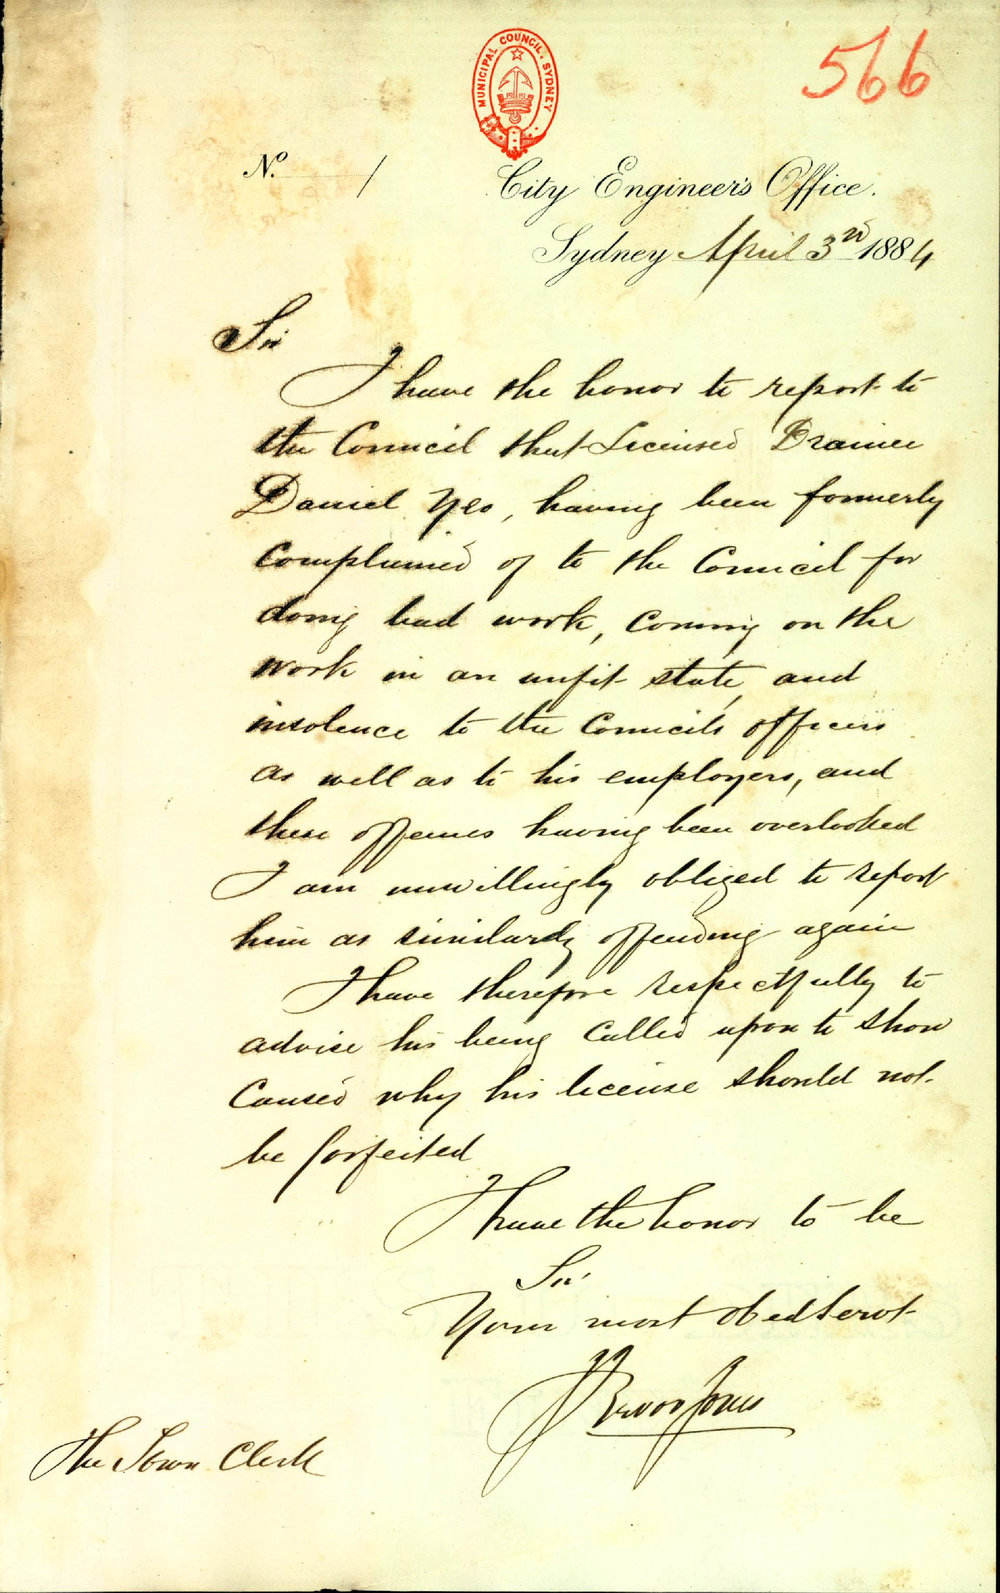 566
MUNICIPAL COUNCIL. SYDNEY
No. /
City Engineer's Office.
Sydney April 3rd 1884
Sir
I have the honor to report to
the Council that Licensed Drainer
Daniel Yeo, having been formerly
complained of to the Council for
doing bad work, coming on the
work in an unfit state, and
insolence to the Councils officers
as well as to his employers, and
these offences having been overlooked
I am unwillingly obliged to report
him as similarly offending again
I have therefore respectfully to
advise his being called upon to show
cause why his license should not
be forfeited
I have the honor to be
Sir
Your most obed Servt
Trevor Jones
The Town Clerk